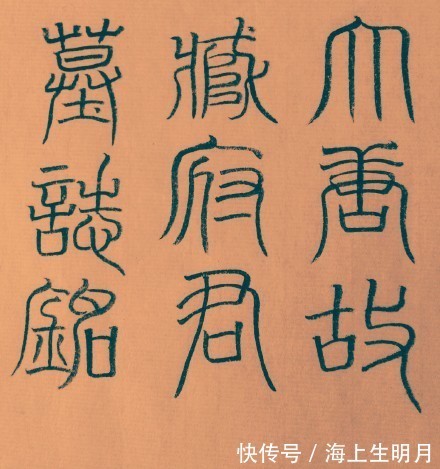 大唐故
臧府君
墓誌銘
快传号/海上生明月